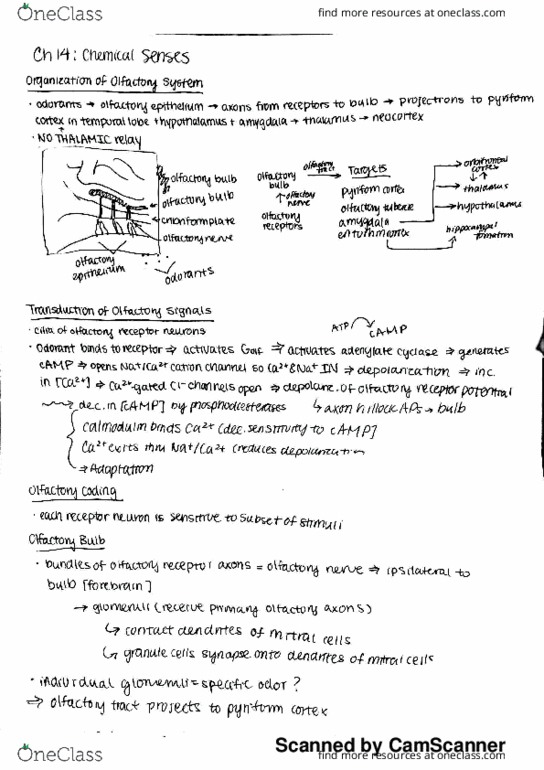 OneClass
find more resources at oneclass.com
find more resources at oneclass.com
Ch 14: Chemical Senses
Organization of Olfactory System
· odorants → olfactory epithelium → axons from receptors to bulb → projections to pyriform
cortex in temporal lobe + hypothalamus + amygdala → thalamus → neocortex
· NO THALAMIC relay
olfactory bulb
olfactory bulb
cribriform plate
olfactory nerve
olfactory epithelium
odorants
olfactory bulb
↑ olfactory nerve
olfactory receptors
olfactory tract
Targets
pyriform cortex
olfactory tubercle
amygdala
entorhinal cortex
→ orbitofrontal cortex
→ thalamus
→ hypothalamus
hippocampal formation
Transduction of Olfactory Signals
· cilia of olfactory receptor neurons
ATP cAMP
· Odorant binds to receptor ⇒ activates Golf ⇒ activates adenylate cyclase ⇒ generates
cAMP ⇒ opens Na+/Ca2+ cation channel so Ca2+ & Na+ IN ⇒ depolarization ⇒ inc.
in [Ca2+] ⇒ Ca2+ gated Cl- channels open ⇒ depolariz. of olfactory receptor potential
dec. in [cAMP] by phosphodiesterases ↳ axon hillock APs → bulb
calmodulin binds Ca2+ (dec. sensitivity to cAMP]
Ca2+ exits thru Na+/Ca2+ (reduces depolarization
⇒ Adaptation
Olfactory Coding
· each receptor neuron is sensitive to subset of stimuli
Olfactory Bulb
· bundles of olfactory receptor axons = olfactory nerve ⇒ ipsilateral to
bulb [forebrain]
→ glomeruli (receive primary olfactory axons)
↳ contact dendrites of mitral cells
↳ granule cells synapse onto dendrites of mitral cells
· individual glomeruli = specific odor?
⇒ olfactory tract projects to pyriform cortex
Scanned by CamScanner
OneClass
find more resources at oneclass.com